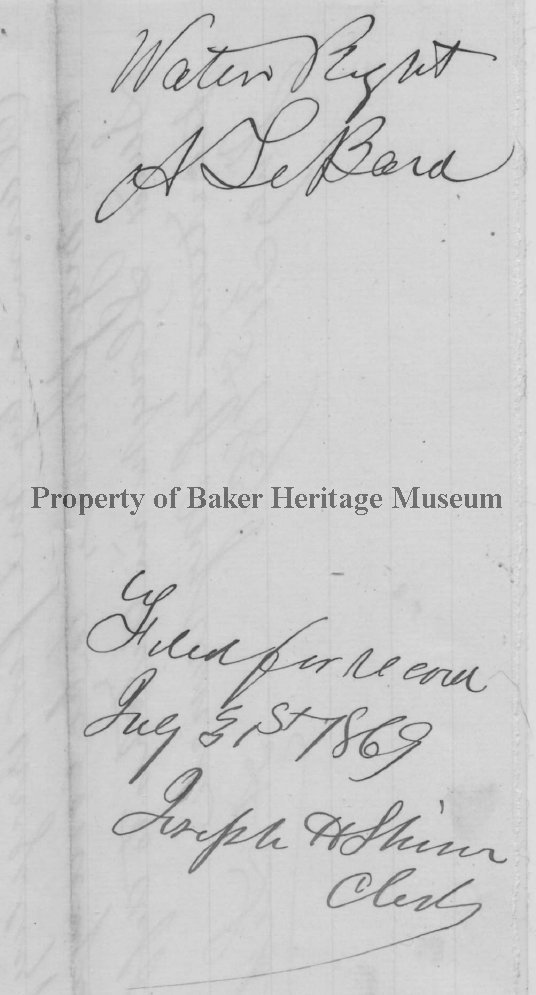 Water Right
A LeBard
Property of Baker Heritage Museum
Filed for record
July 31st 1869
Joseph H Shinn
Clerk